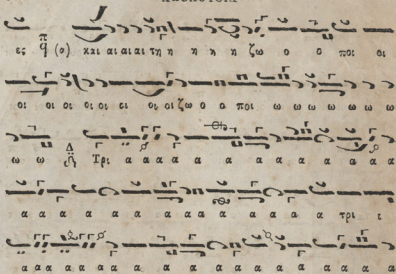 ες π q (ο) και αι αι αι τη η η η η ζω ο ο ποι οι
οι οι οι οι οι οι οι οι ζω ο ο ποι ω ω ω ω ω ω ω
ω ω Δ Τρι α α α α α α α α α α α
α α α α α α α α α α α α α τρι ι
α α α α α α α α α α α α α α α α